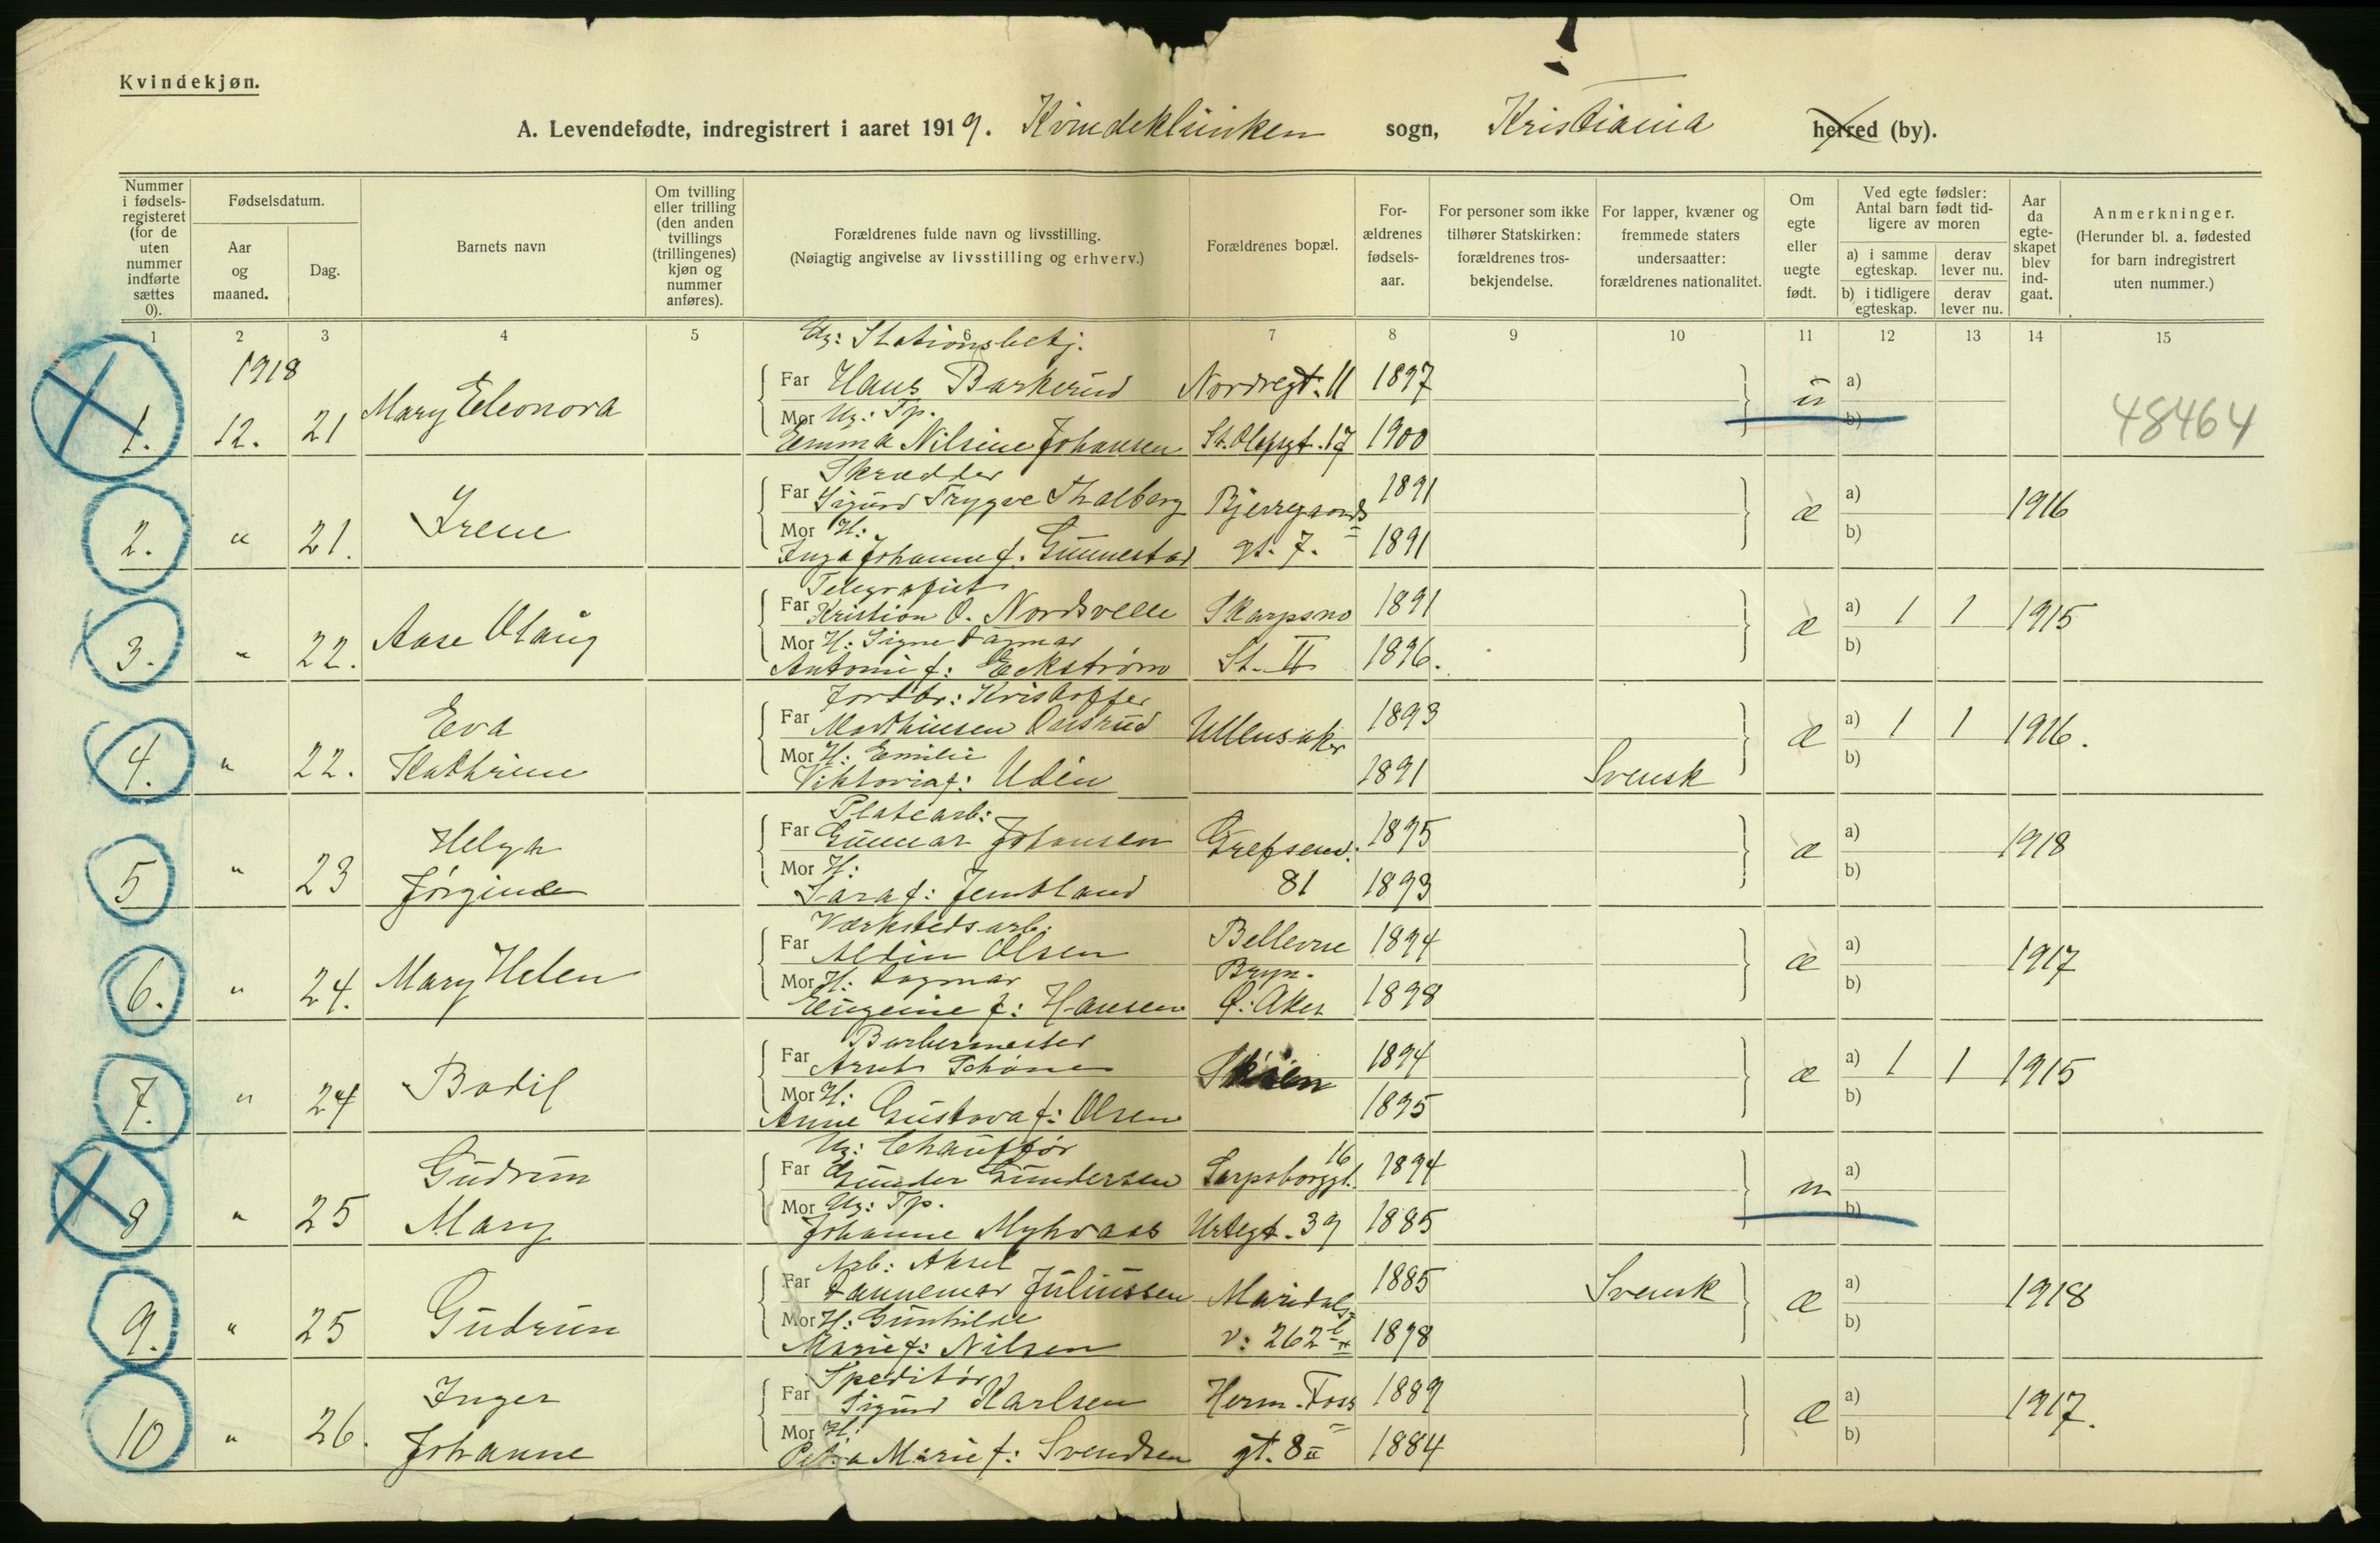 Kvindekjøn.
A. Levendefødte, indregistrert i aaret 1919. Kvindeklinken sogn, Kristiania herred (by).
Nummer i fødsels-registeret (for de uten nummer indførte sættes 0).
Fødselsdatum.
Aar og maaned.
Dag.
Barnets navn
Om tvilling eller trilling (den anden tvillings (trillingenes) kjøn og nummer anføres).
Forældrenes fulde navn og livsstilling.
(Nøiagtig angivelse av livsstilling og erhverv.)
Forældrenes bopæl.
For-ældrenes fødsels-aar.
For personer som ikke tilhører Statskirken: forældrenes tros-bekjendelse.
For lapper, kvæner og fremmede staters undersaatter: forældrenes nationalitet.
Om egte eller uegte født.
Ved egte fødsler: Antal barn født tid-ligere av moren
a) i samme egteskap. derav lever nu.
b) i tidligere egteskap. derav lever nu.
Aar da egte-skapet blev ind-gaat.
Anmerkninger.
(Herunder bl. a. fødested for barn indregistrert uten nummer.)
1 2 3 4 5 6 7 8 9 10 11 12 13 14 15
1918
Ug: Stationsbetj.
Far Hans Barkerud Nordregt. 11 1897 a)
1. 12. 21 Mary Eleonora u 48464
Mor Ug: Tp.
Emma Nilsine Johansen St. Olafsgt. 17 1900 b)
Skrædder
Far Sigurd Trygve Thalberg Bjerregaards 1891 a)
2. " 21. Irene æ 1916
Mor H:
Inga Johanne f. Gunnestad gt. 7. 1891 b)
Telegrafist
Far Kristian O. Nordsvelle Skarpsno 1891 a) 1 1 1915
3. " 22. Aase Olaug æ
Mor H: Signe Dagmar
Antonie f: Eckstrøm St. II 1896. b)
Jordbr: Kristoffer
Far Mathiesen Onsrud Ullensaker 1893 a) 1 1 1916.
4. " 22. Eva Kathrine æ
Mor H: Emilie
Viktoria f: Udén 1891 Svensk b)
Platearb:
Far Gunnar Johansen Grefsenv. 1895 a)
5 " 23 Helga Jørgine æ 1918
Mor H:
Sara f: Jemtland 81 1893 b)
Værkstedsarb.
Far Aldin Olsen Bellevue 1894 a)
6. " 24. Mary Helen æ 1917
Mor H: Dagmar Bryn.
Eugenie f: Hansen Ø: Aker 1898 b)
Barbermester
Far Arnt Schöne Skien 1894 a) 1 1 1915
7. " 24 Bodil æ
Mor H:
Anne Gustava f: Olsen 1895 b)
Ug: Chauffør 16
Far Gunder Gundersen Sarpsborggt. 1894 a)
8 " 25 Gudrun Mary u
Mor Ug: Tp.
Johanne Myhraas Urtegt. 39 1885 b)
Arb: Aksel
Far Dannemar Juliussen Maridals- 1885 Svensk a)
9. " 25 Gudrun æ 1918
Mor H: Gunhilde
Marie f: Nilsen v: 262 1898 b)
Speditør
Far Sigurd Karlsen Herm. Foss 1889 a)
10 " 26. Inger Johanne æ 1917.
Mor H:
Petra Marie f: Svendsen gt. 8 II 1884 b)